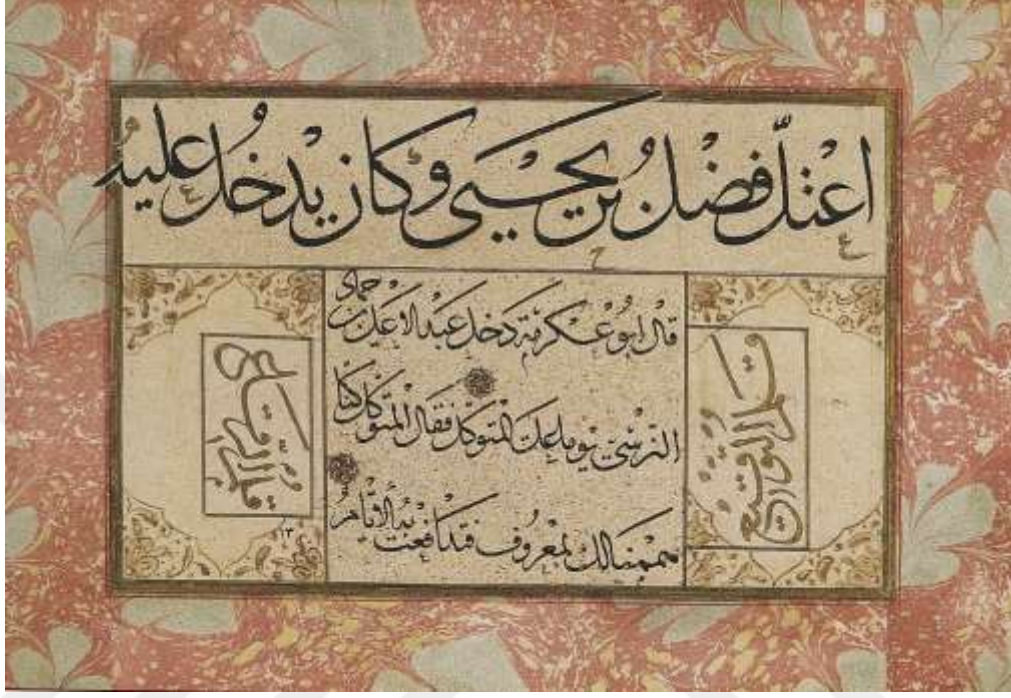 اعتلّ فضل بن يحيى وكان يدخل عليه
قال ابو عكرمة دخل عبد الاعلى بن حماد
النرسي يوما على المتوكل فقال المتوكل كنا
هممنا لك بمعروف فتدافعت به الايام
قلم التواقيع
قلم الرقاع
١٣